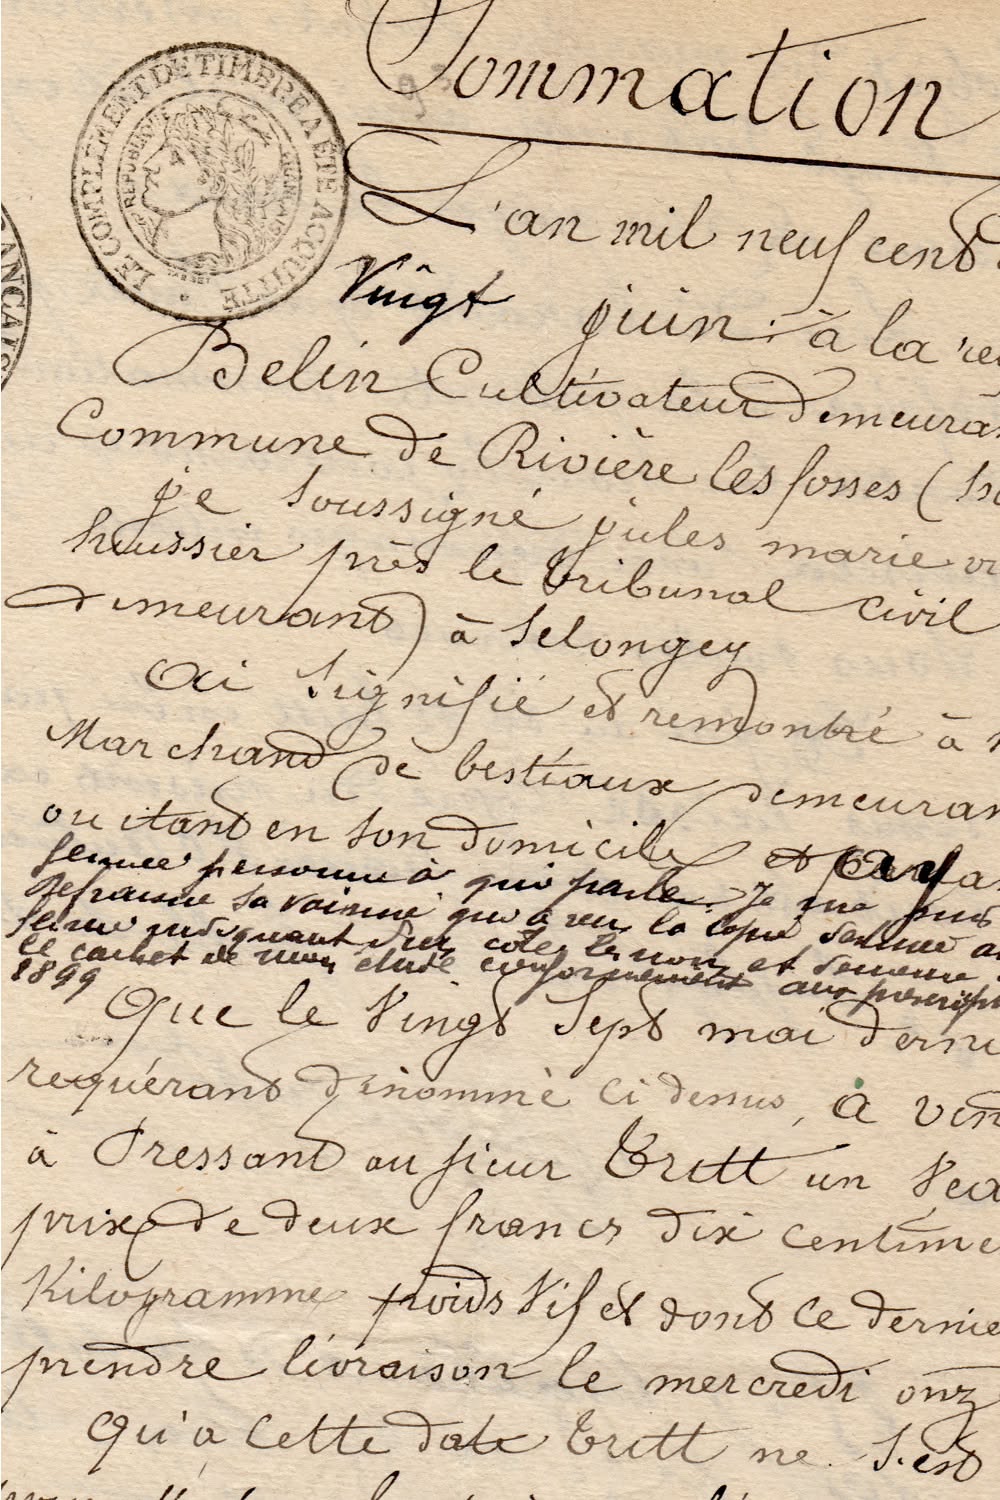 Sommation
LE COMPLEMENT DE TIMBRE A ÉTÉ ACQUITTÉ
REPUBLIQUE FRANÇAISE
ANÇAIS
L'an mil neuf cent
Vingt juin à la re
Belin Cultivateur demeura
Commune de Rivière les fosses (
je soussigné jules marie vi
huissier près le tribunal civil
demeurant à Selongey
Ai signifié et remontré à
Marchand de bestiaux demeuran
ou étant en son domicile et
personne à qui parle. Je
sa voisine qui a reçu la copie
indiquant d'un côté le nom et
le cachet de mon étude conformément aux prescrip
1899
Que le Vingt Sept mai derni
requérant dénommé ci dessus, a ven
à Pressant au sieur Tritt un Vea
prix de deux francs dix centime
Kilogramme poids Vif et dont ce dernie
prendre livraison le mercredi onz
qu'a cette date Tritt ne s'est